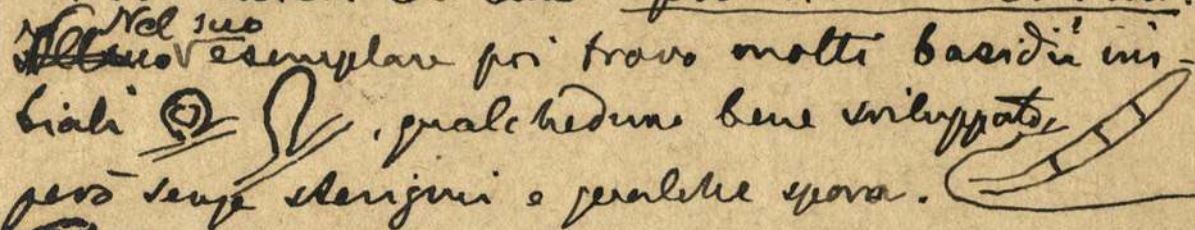 Nel suo
esemplare poi trovo molti basidii ini-
ziali , qualcheduno bene sviluppato,
però senza sterigmi e qualche spora.